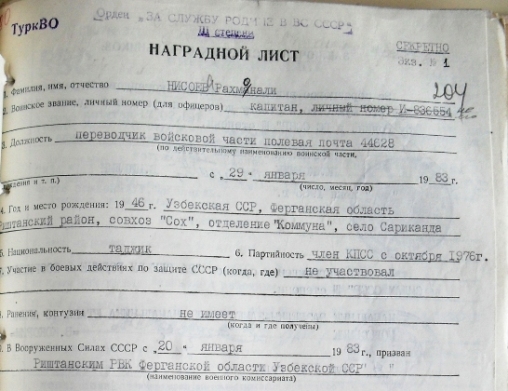 ТуркВО
Орден „ЗА СЛУЖБУ РОДИНЕ В ВС СССР"
III степени
НАГРАДНОЙ ЛИСТ
СЕКРЕТНО
экз. № 1
204
1. Фамилия, имя, отчество НИСОЕВ Рахмонали
2. Воинское звание, личный номер (для офицеров) капитан, личный номер И-836654
3. Должность переводчик войсковой части полевая почта 44628
(по действительному наименованию воинской части,
учреждения и т. п.) с „29" января 1983 г.
(число, месяц, год)
4. Год и место рождения: 1946 г. Узбекская ССР, Ферганская область
Риштанский район, совхоз "Сох", отделение "Коммуна", село Сариканда
5. Национальность таджик 6. Партийность член КПСС с октября 1976г.
7. Участие в боевых действиях по защите СССР (когда, где) не участвовал
8. Ранения, контузии не имеет
(когда и где получены)
9. В Вооруженных Силах СССР с „20" января 1983 г., призван
Риштанским РВК Ферганской области Узбекской ССР
(наименование военного комиссариата)